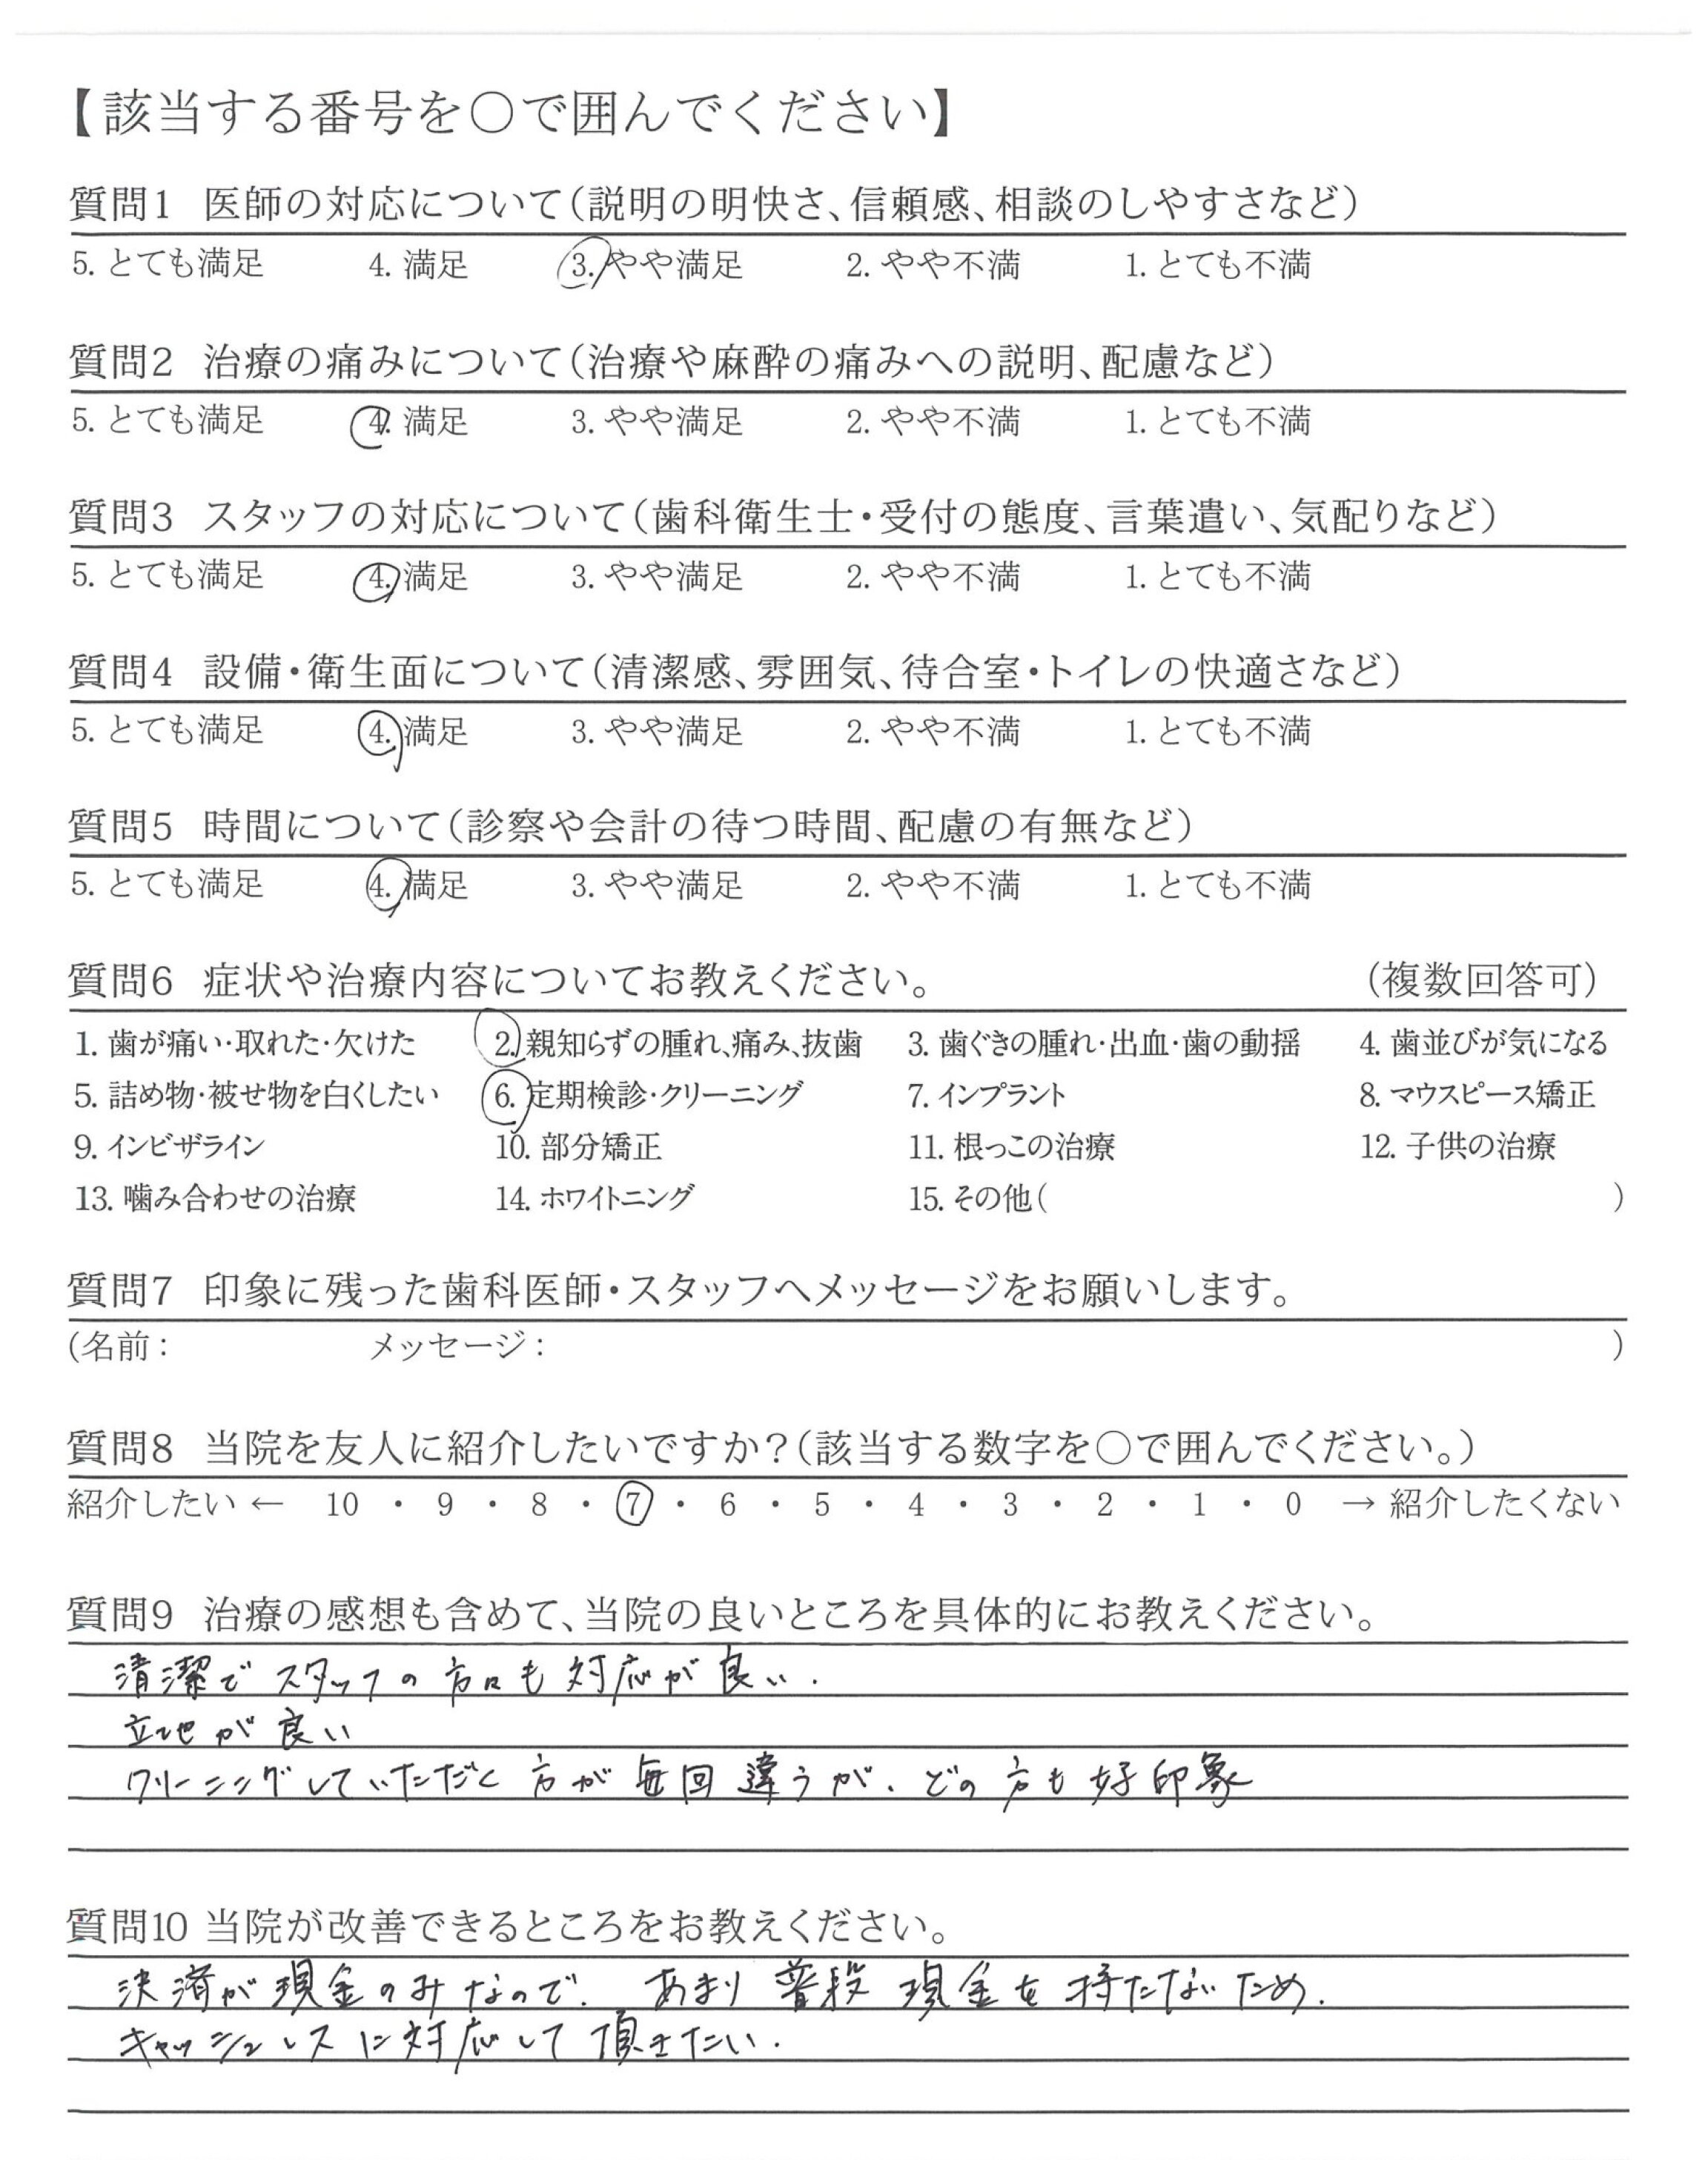 【該当する番号を○で囲んでください】
質問1 医師の対応について(説明の明快さ、信頼感、相談のしやすさなど)
5. とても満足 4. 満足 3. やや満足 2. やや不満 1. とても不満
質問2 治療の痛みについて(治療や麻酔の痛みへの説明、配慮など)
5. とても満足 4. 満足 3. やや満足 2. やや不満 1. とても不満
質問3 スタッフの対応について(歯科衛生士・受付の態度、言葉遣い、気配りなど)
5. とても満足 4. 満足 3. やや満足 2. やや不満 1. とても不満
質問4 設備・衛生面について(清潔感、雰囲気、待合室・トイレの快適さなど)
5. とても満足 4. 満足 3. やや満足 2. やや不満 1. とても不満
質問5 時間について(診察や会計の待つ時間、配慮の有無など)
5. とても満足 4. 満足 3. やや満足 2. やや不満 1. とても不満
質問6 症状や治療内容についてお教えください。 (複数回答可)
1. 歯が痛い·取れた·欠けた 2. 親知らずの腫れ、痛み、抜歯 3. 歯ぐきの腫れ·出血·歯の動揺 4. 歯並びが気になる
5. 詰め物·被せ物を白くしたい 6. 定期検診·クリーニング 7. インプラント 8. マウスピース矯正
9. インビザライン 10. 部分矯正 11. 根っこの治療 12. 子供の治療
13. 噛み合わせの治療 14. ホワイトニング 15. その他( )
質問7 印象に残った歯科医師・スタッフへメッセージをお願いします。
(名前: メッセージ: )
質問8 当院を友人に紹介したいですか?(該当する数字を○で囲んでください。)
紹介したい ← 10 ・ 9 ・ 8 ・ 7 ・ 6 ・ 5 ・ 4 ・ 3 ・ 2 ・ 1 ・ 0 → 紹介したくない
質問9 治療の感想も含めて、当院の良いところを具体的にお教えください。
清潔で スタッフの方々も対応が良い.
立地が良い
クリーニングしていただく方が毎回違うが、どの方も好印象
質問10 当院が改善できるところをお教えください。
決済が現金のみなので、あまり普段現金を持たないため.
キャッシュレスに対応して頂きたい.